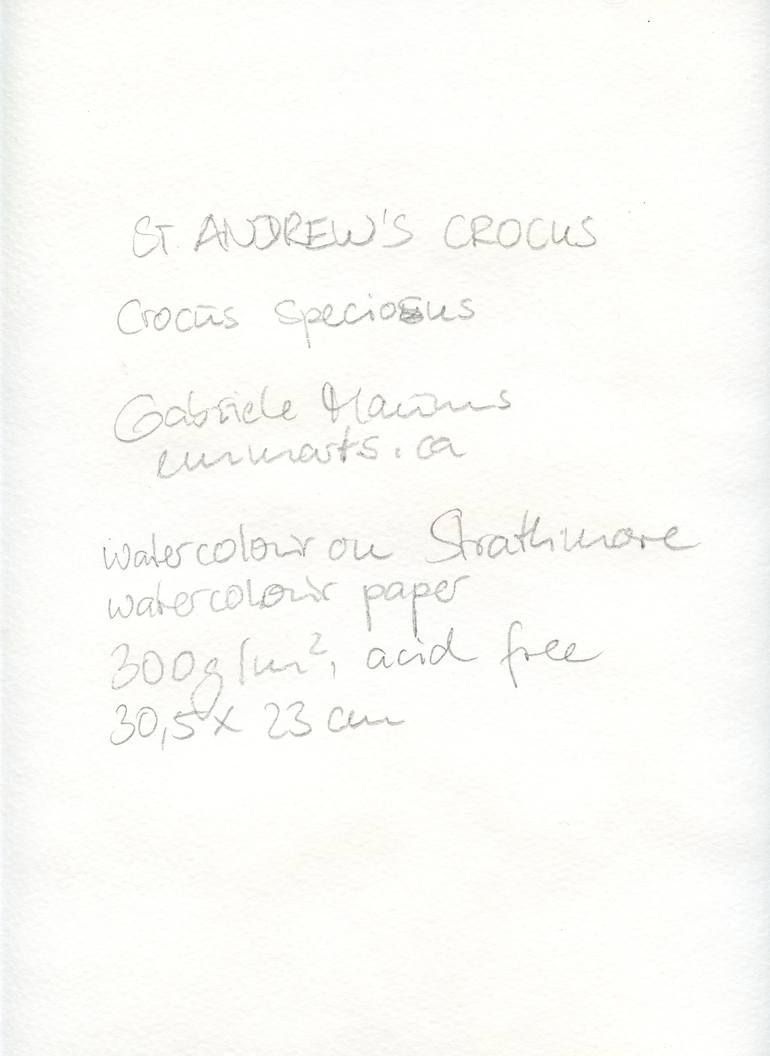 ST. ANDREW'S CROCUS
Crocus speciosus
Gabriele Maurus
watercolour on Strathmore
watercolour paper
300g/m², acid free
30,5 x 23 cm